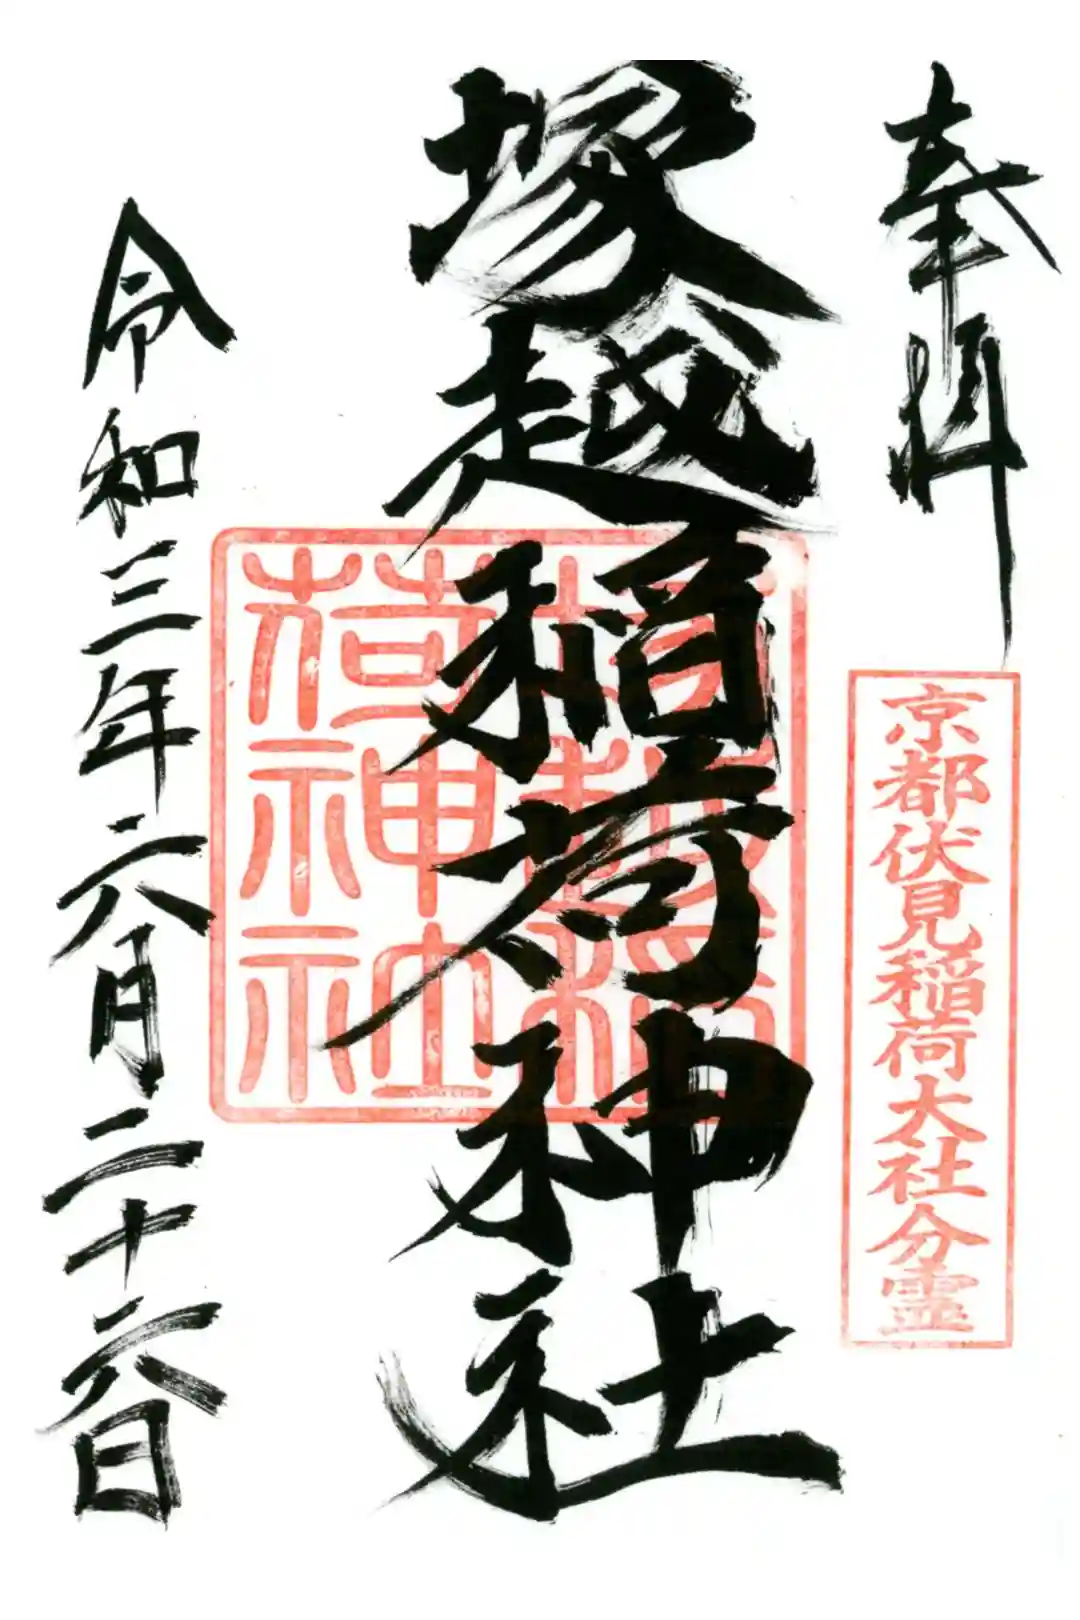 奉拝
京都伏見稲荷大社分霊
塚越稲荷神社
塚越稲
荷神社
令和三年六月二十六日